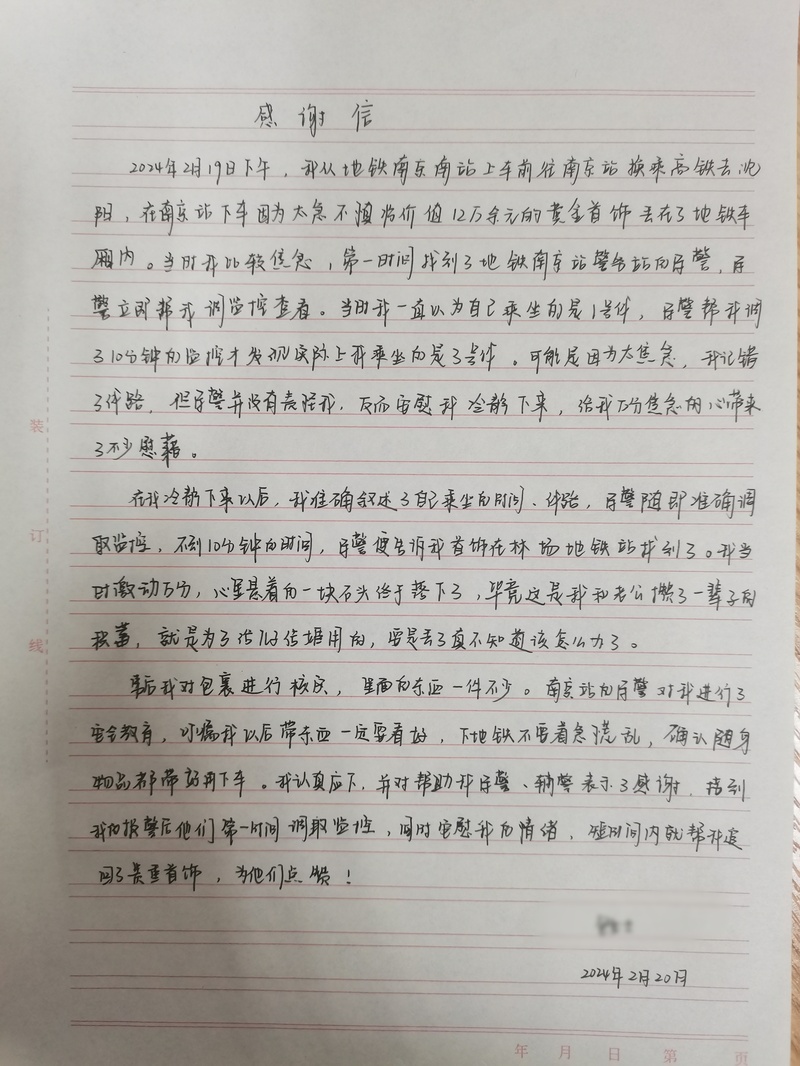 感谢信
2024年2月19日下午，我从地铁南京南站上车前往南京站换乘高铁去沈
阳，在南京站下车因为太急不慎将价值12万余元的黄金首饰丢在了地铁车
厢内。当时我比较焦急，第一时间找到了地铁南京站警务站的民警，民
警立即帮我调监控查看。当时我一直以为自己乘坐的是1号线，民警帮我调
了10分钟的监控才发现实际上我乘坐的是3号线。可能是因为太焦急，我记错
了线路，但民警并没有责怪我，反而安慰我冷静下来，给我万分焦急的心带来
了不少慰藉。
在我冷静下来以后，我准确叙述了自己乘坐的时间、线路，民警随即准确调
取监控，不到10分钟的时间，民警便告诉我首饰在林场地铁站找到了。我当
时激动万分，心里悬着的一块石头终于落下了，毕竟这是我和老公攒了一辈子的
积蓄，就是为了给儿子结婚用的，要是丢了真不知道该怎么办了。
事后我对包裹进行核实，里面的东西一件不少。南京站的民警对我进行了
安全教育，叮嘱我以后带东西一定要看好，下地铁不要着急慌乱，确认随身
物品都带好再下车。我认真应下，并对帮助我民警、辅警表示了感谢，接到
我的报警后他们第一时间调取监控，同时安慰我的情绪，短时间内就帮我追
回了贵重首饰，为他们点赞！
2024年2月20日
装
订
线
年 月 日 第 页